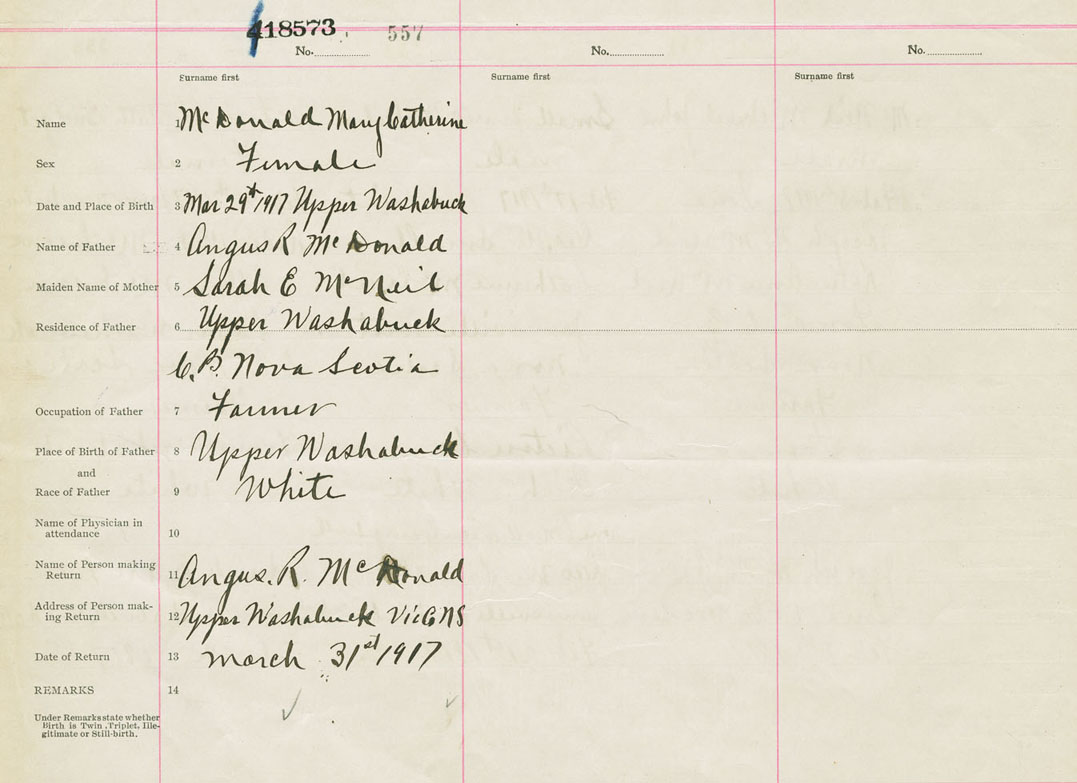 418573. 557
No. No. No.
Surname first Surname first Surname first
Name 1 McDonald Mary Catherine
Sex 2 Female
Date and Place of Birth 3 Mar 29th 1917 Upper Washabuck
Name of Father 4 Angus R McDonald
Maiden Name of Mother 5 Sarah E McNeil
Residence of Father 6 Upper Washabuck
C.B. Nova Scotia
Occupation of Father 7 Farmer
Place of Birth of Father 8 Upper Washabuck
and
Race of Father 9 White
Name of Physician in
attendance 10
Name of Person making
Return 11 Angus. R. McDonald
Address of Person mak-
ing Return 12 Upper Washabuck Vic Co NS
Date of Return 13 March 31st 1917
REMARKS 14
Under Remarks state whether
Birth is Twin, Triplet, Ille-
gitimate or Still-birth.